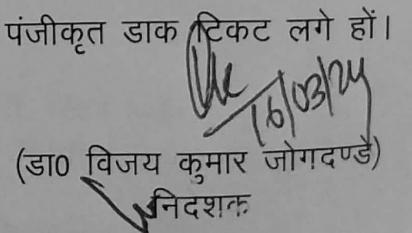 पंजीकृत डाक टिकट लगे हों।
16/03/24
(डा0 विजय कुमार जोगदण्डे)
निदशक